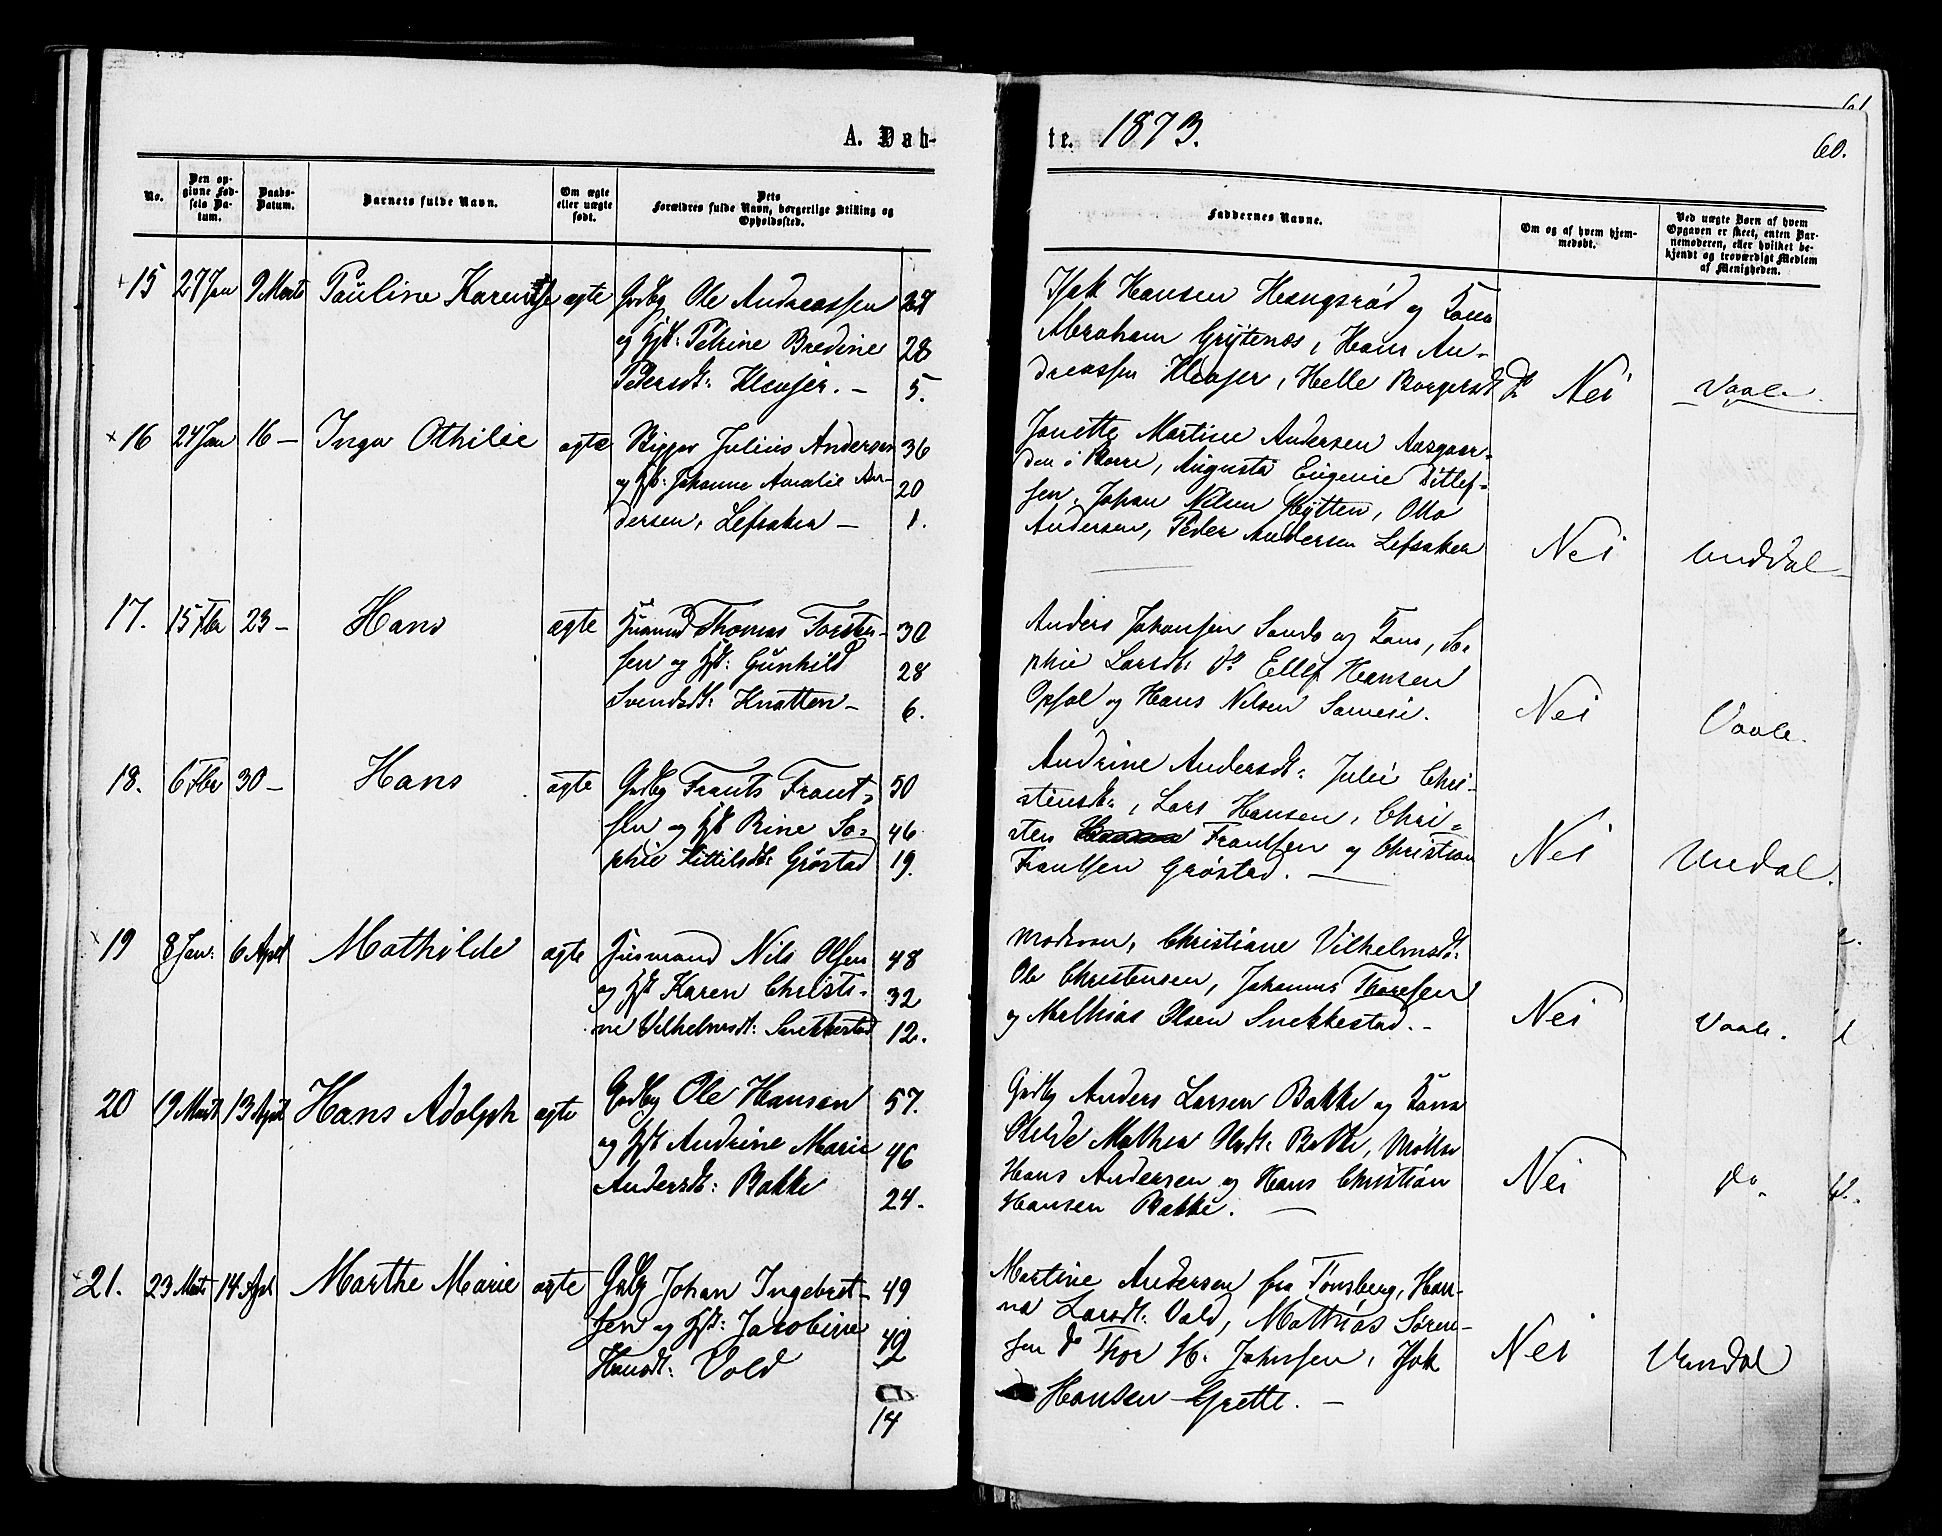 A. Dab-
te. 1873.
60.
No.
Den op-
givne Fød-
sels Da-
tum.
Daabs-
Datum.
Barnets fulde Navn.
Om ægte
eller uægte
født.
Dets
Forældres fulde Navn, borgerlige Stilling og
Opholdssted.
Faddernes Navne.
Om og af hvem hjem-
medøbt.
Ved uægte Børn af hvem
Opgaven er skeet, enten Bar-
nemoderen, eller hvilket be-
kjendt og troværdigt Medlem
af Menigheden.
15 27 Jan 9 Marts Pauline Karentse ægte Gdbg Ole Andreassen
og Hst: Petrine Bredine 28
Pedersdt: Klausjer. - 5.
Isak Hansen Hengsrød og Kona
Abraham Grytenes, Hans An-
dreassen Klausjer, Helle Borgersdt do Nei Vaale.
16 24 Jan 16 - Inga Othilie ægte Skipper Julius Andersen 36
og Hst: Johanne Amalie An- 20
dersen, Lefsaker - 1.
Janette Martine Andersen Aasgaar-
den i Borre, Augusta Eugenie Ditlef-
sen, Johan Nilsen Hytten, Otto
Andersen, Peder Andersen Lefsaker Nei Undal
17. 15 Fbr 23 - Hans ægte Husmd Thomas Torsten- 30
sen og Hst: Gunhild 28
Svendsdt: Knatten - 6.
Anders Johansen Sande og Kone, So-
phie Larsdt: do Ellef Hansen
Opsal og Hans Nilsen Nei Vaale.
18. 6 Fbr 30 - Hans ægte Gdbg Frants Frant- 50
sen og Hst Rine So- 46
phie Kittilsdt: Grøstad 19.
Andrine Andersdt: Julie Chri-
stensdt:, Lars Hansen, Chri-
sten Frantsen og Christian
Frantsen Grøstad. - Nei Undal.
19 8 Jan: 6 April Mathilde ægte Husmand Nils Olsen 48
og Hst Karen Christi- 32
ne Vilhelmsdt: Snekkestad 12.
Moderen, Christiane Vilhelmsdt:
Ole Christensen, Johannes Thoresen
og Mathias Olsen Snekkestad. - Nei Vaale.
20 19 Marts 13 April Hans Adolph ægte Gdbg Ole Hansen 57.
og Hst Andrine Marie 46
Andersdt: Bakke 24.
Gdbg Anders Larsen Bakke og Kona
Mathea Olsdt: Bakke,
Hans Andersen og Hans Christian
Hansen Bakke. - Nei do
21. 23 Marts 14 April Marthe Marie ægte Gdbg Johan Ingebret- 49
sen og Hst: Jacobine 42
Hansdt: Vold
14
Martine Andersen fra Tønsberg, Han-
na Larsdt: Vold, Mathias Søren-
sen do Thor H. Johnsen, Isak
Hansen Grette. - Nei Undal